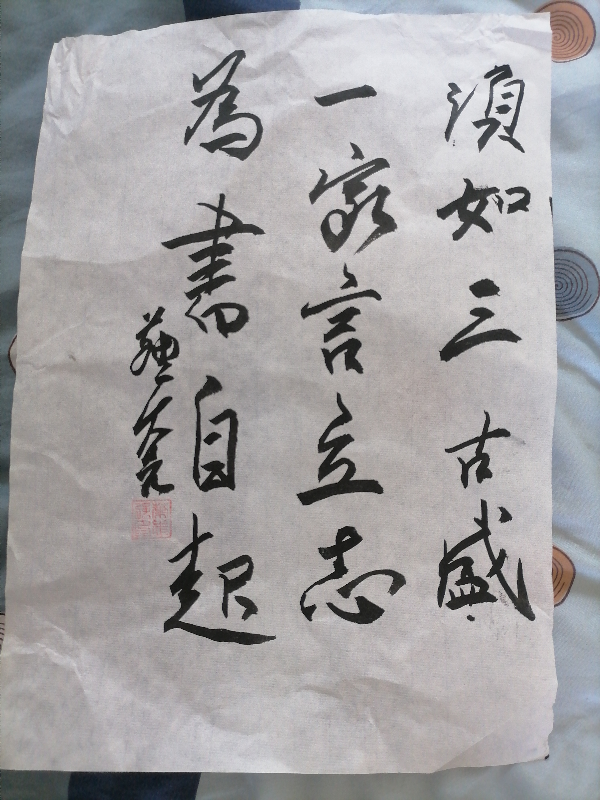 須如三古盛
一家言立志
為書自起